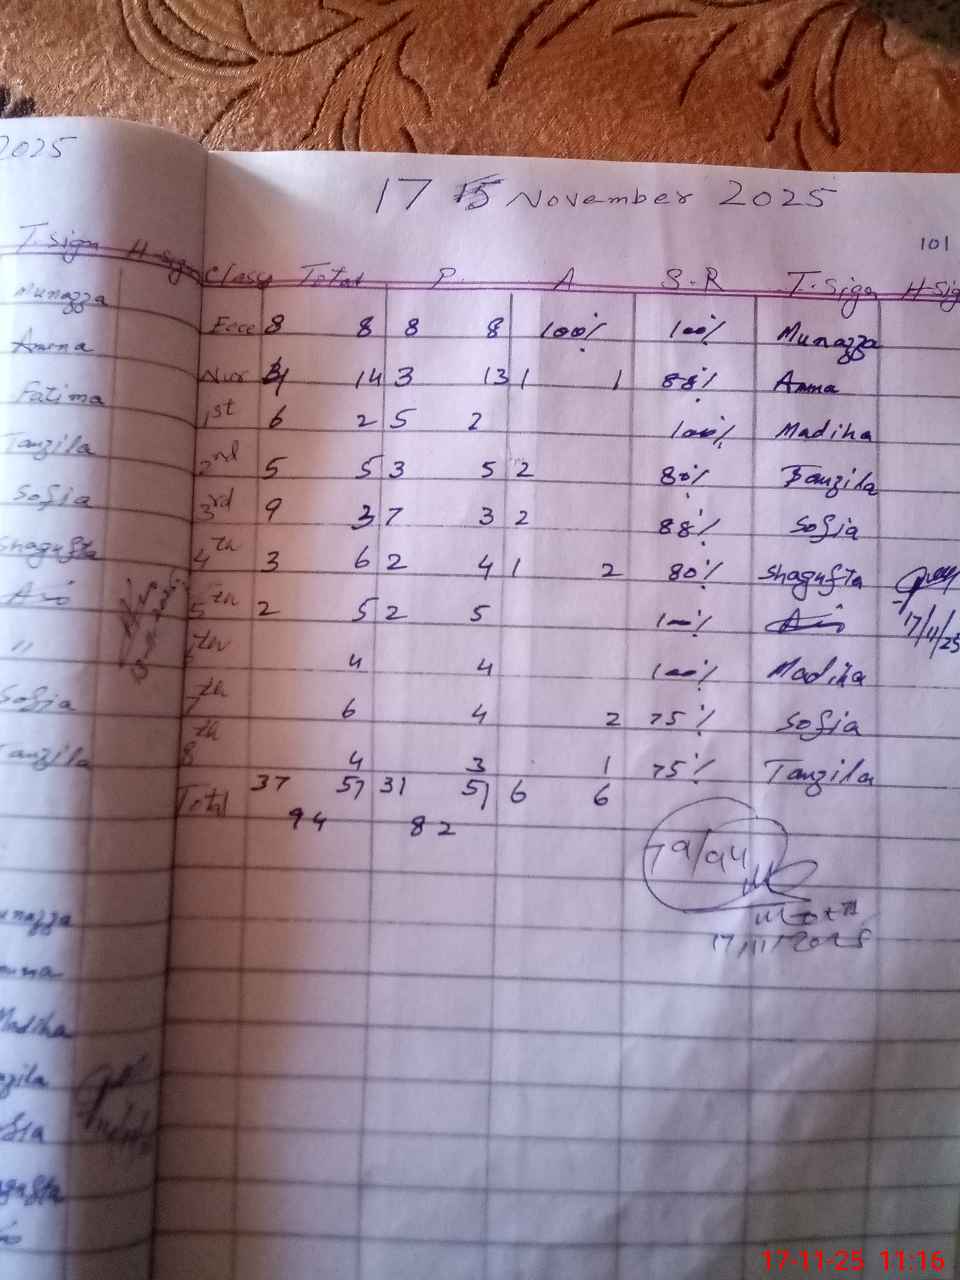 2025
17 November 2025
101
T.Sign H-Sign
Class Total P. A S.R T.Sign H-Sig
Munazza
Amna
Fatima
Tanzila
Sofia
Shagufta
"
Sofia
Tanzila
Ece 8 8 8 8 100% 100% Munazza
Nur 4 14 3 13 1 1 88% Amna
1st 6 2 5 2 100% Madiha
2nd 5 5 3 5 2 80% Tanzila
3rd 9 3 7 3 2 88% Sofia
4th 3 6 2 4 1 2 80% Shagufta
5th 2 5 2 5 100%
17/11/25
4 4 100% Madiha
7th 6 4 2 75% Sofia
8th 4 3 1 75% Tanzila
Total 37 57 31 51 6 6
94 82
79/94
17/11/2025
unazza
mna
Madiha
zila
fia
agufta
17-11-25 11:16